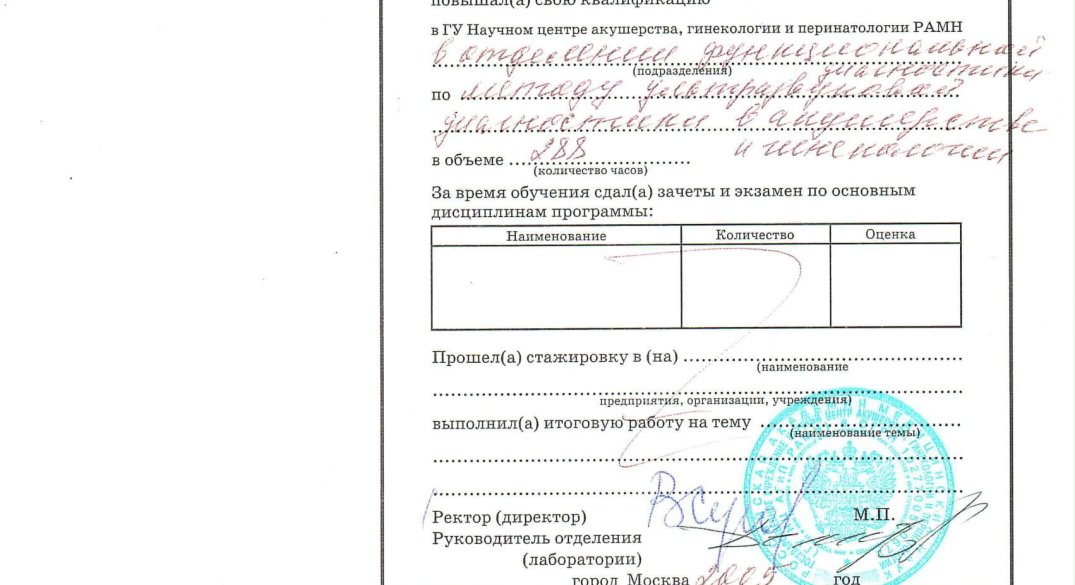 повышал(а) свою квалификацию
в ГУ Научном центре акушерства, гинекологии и перинатологии РАМН
в отделении функциональной
(подразделения) диагностики
по методу ультразвуковой
диагностики в акушерстве
в объеме 288 и гинекологии
(количество часов)
За время обучения сдал(а) зачеты и экзамен по основным
дисциплинам программы:
Наименование Количество Оценка
Прошел(а) стажировку в (на)
(наименование
предприятия, организации, учреждения)
выполнил(а) итоговую работу на тему
(наименование темы)
Ректор (директор) М.П.
Руководитель отделения
(лаборатории)
город Москва 2005 год